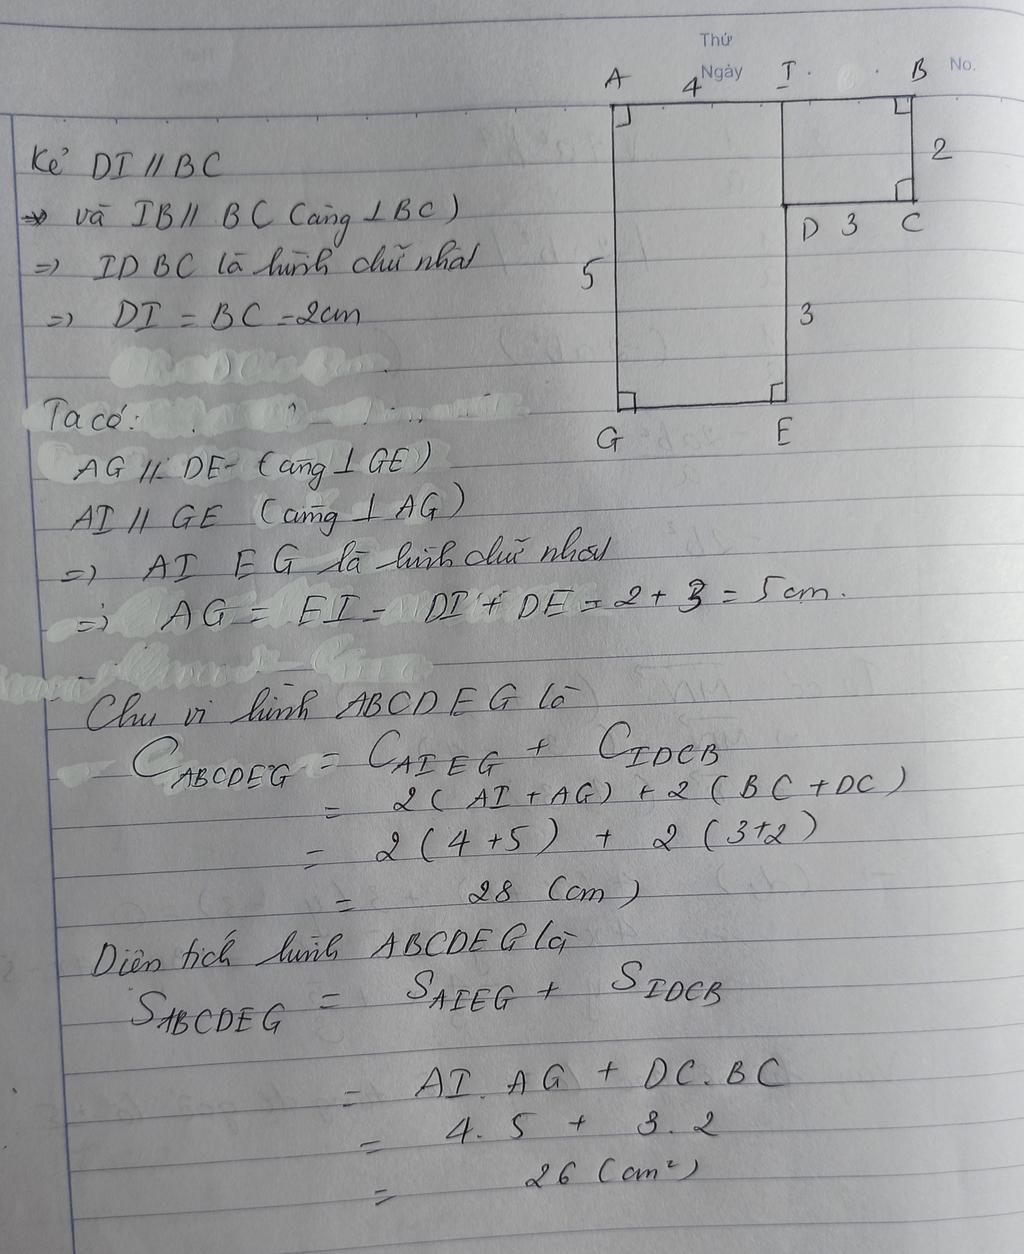 Thứ
Ngày
No.
A 4 I B
2
D 3 C
5
3
G E
Kẻ DI // BC
và IB // BC (cùng ⊥ BC)
=> IDBC là hình chữ nhật
=> DI = BC = 2cm
Ta có:
AG // DE (cùng ⊥ GE)
AI // GE (cùng ⊥ AG)
=> AI EG là hình chữ nhật
=> AG = EI = DI + DE = 2 + 3 = 5 cm.
Chu vi hình ABCDEG là
C_ABCDEG = C_AIEG + C_IDCB
= 2 (AI + AG) + 2 (BC + DC)
= 2 (4 + 5) + 2 (3+2)
= 28 (cm)
Diện tích hình ABCDEG là
S_ABCDEG = S_AIEG + S_IDCB
= AI. AG + DC. BC
= 4. 5 + 3. 2
= 26 (cm²)